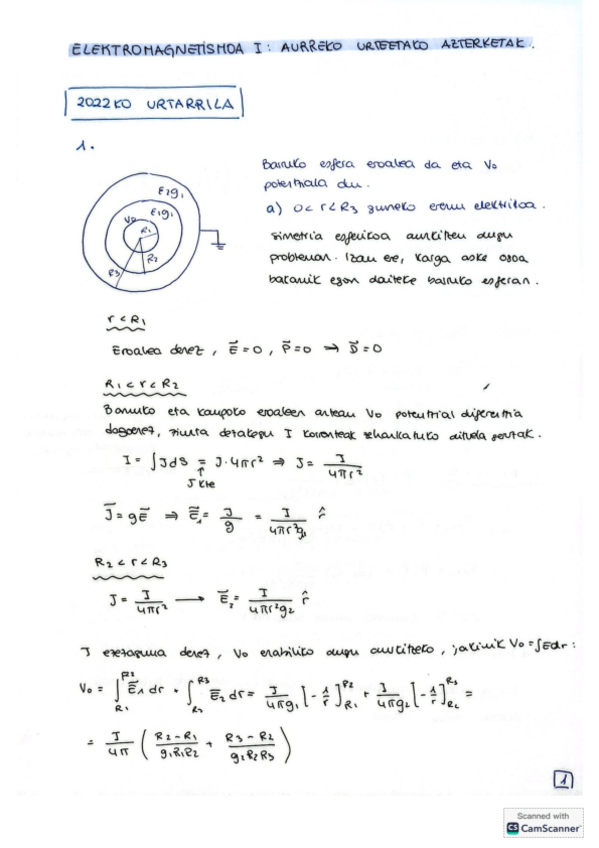 ELEKTROMAGNETISMOA I: AURREKO URTEETAKO AZTERKETAK.
2022KO URTARRILA
1.
Barruko esfera eroalea da eta V₀
potentziala du.
a) 0<r<R₃ guneko eremu elektrikoa.
Simetria esferikoa aurkitzen dugu
probleman. Izan ere, karga aske osoa
bakarrik egon daiteke barruko esferan.
ε₂g₁
ε₁g₁
V₀
R₁
R₂
R₃
r<R₁
Eroalea denez, E⃗=0, P⃗=0 → D⃗=0
R₁<r<R₂
Barruko eta kanpoko eroaleen artean V₀ potentzial diferentzia
dagoenez, I korronteak zeharkatuko dituela geruzak.
I = ∫JdS = J·4πr² ⇒ J = I/4πr²
↑
J kte
J⃗=gE⃗ ⇒ E⃗₁ = J/g = I/4πr²g₁ r̂
R₂<r<R₃
J = I/4πr² → E⃗₂ = I/4πr²g₂ r̂
I ezezaguna denez, V₀ erabiliko dugu aurkitzeko, jakinik V₀=∫Edr:
V₀ = ∫_{R₁}^{R₂} E⃗₁ dr + ∫_{R₂}^{R₃} E⃗₂ dr = I/4πg₁ [-1/r]_{R₁}^{R₂} + I/4πg₂ [-1/r]_{R₂}^{R₃} =
= I/4π ( R₂-R₁/g₁R₁R₂ + R₃-R₂/g₂R₂R₃ )
1
Scanned with
CS CamScanner